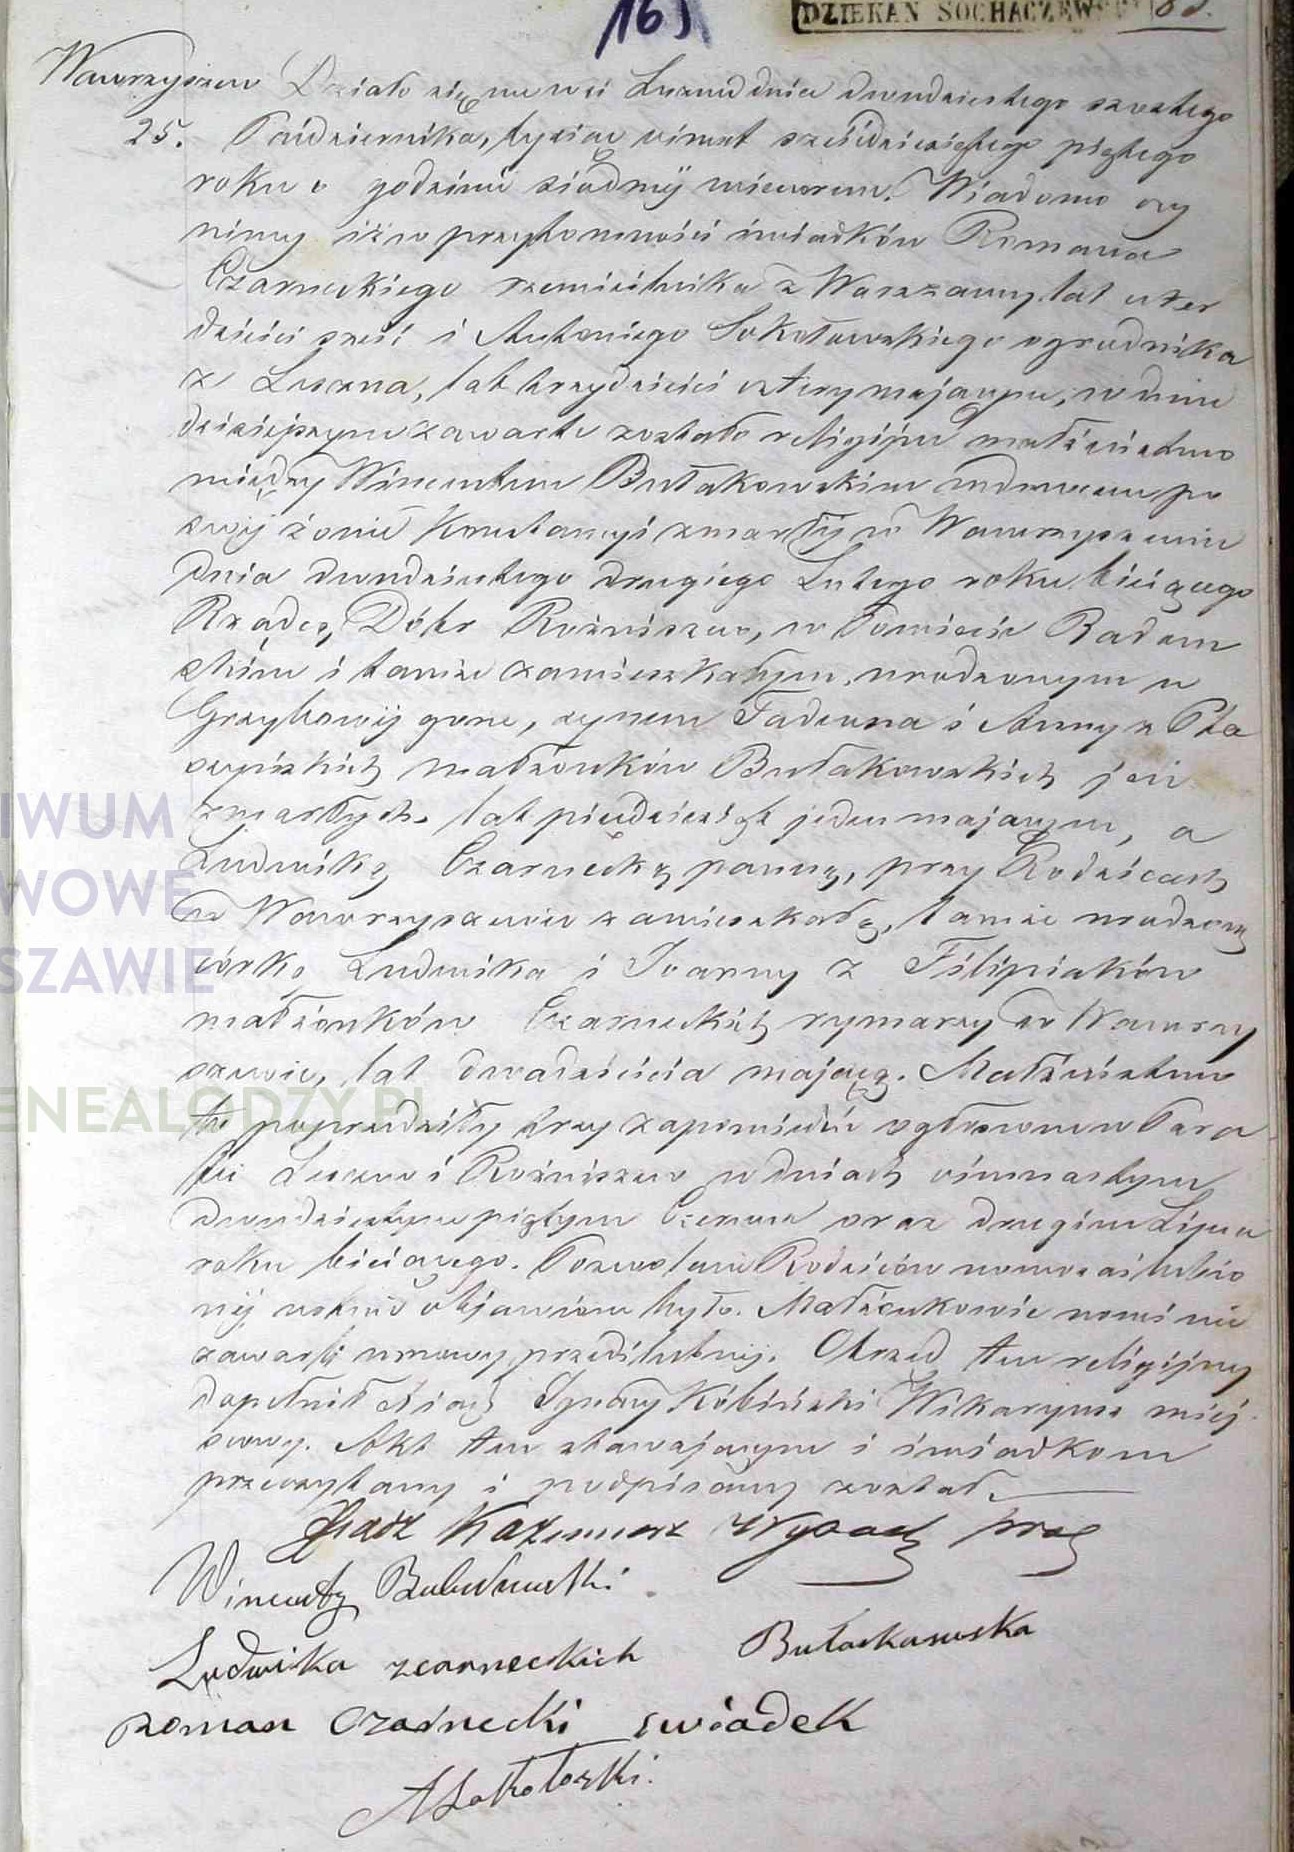 163
DZIEKAN SOCHACZEWSKI
Wawrzyszew Działo się we wsi Łuznie dnia dwudziestego szóstego
25. Października, tysiąc ośmset sześćdziesiątego piątego
roku o godzinie siódméj wieczorem. Wiadomo czy
nimy iż w przytomności świadków Romana
Czarneckiego rzemieślnika z Warszawy lat czter
dzieści sześć i Antoniego Sokołowskiego ogrodnika
z Łuzna, lat trzydzieści cztery mających, w dniu
dzisiejszym zawarte zostało religijne małżeństwo
między Wincentym Bułakowskim wdowcem po
swéj żonie Konstancyi zmarłéj w Wawrzyszewie
dnia dwudziestego drugiego Lutego roku bieżącego
Rządcą Dóbr Rożniszew, w Powiecie Radom
skim i tamże zamieszkałym, urodzonym w
Grzybowéj górze, synem Tadeusza i Anny z Pła
czyńskich małżonków Bułakowskich już
zmarłych, lat pięćdziesiąt jeden mającym, a
Ludwiką Czarnecką panną, przy Rodzicach
w Wawrzyszewie zamieszkałą, tamże urodzoną
córką Ludwika i Joanny z Filipiaków
małżonków Czarneckich rymarzy w Wawrzy
szewie, lat dwadzieścia mającą. Małżeństwo
to poprzedziły trzy zapowiedzie ogłoszone w Para
fii i Rożniszew w dniach ośmnastym
dwudziestym piątym Czerwca oraz drugim Lipca
roku bieżącego. Pozwolenie Rodziców nowozaślubio
néj ustnie objawione było. Małżonkowie nowi nie
zawarli umowy przedślubnéj. Obrzęd ten religijny
dopełnił Xiądz Ignacy Wikaryusz miéj
scowy. Akt ten stawającym i świadkom
przeczytany i podpisany został.
Xiądz Kazimierz
Wincenty Bułakowski
Ludwika zcarneckich Bułaskawska
Roman Czarnecki swiadek
A Sokołoski.
IWUM
WOWE
SZAWIE
ENEALODZY.PL